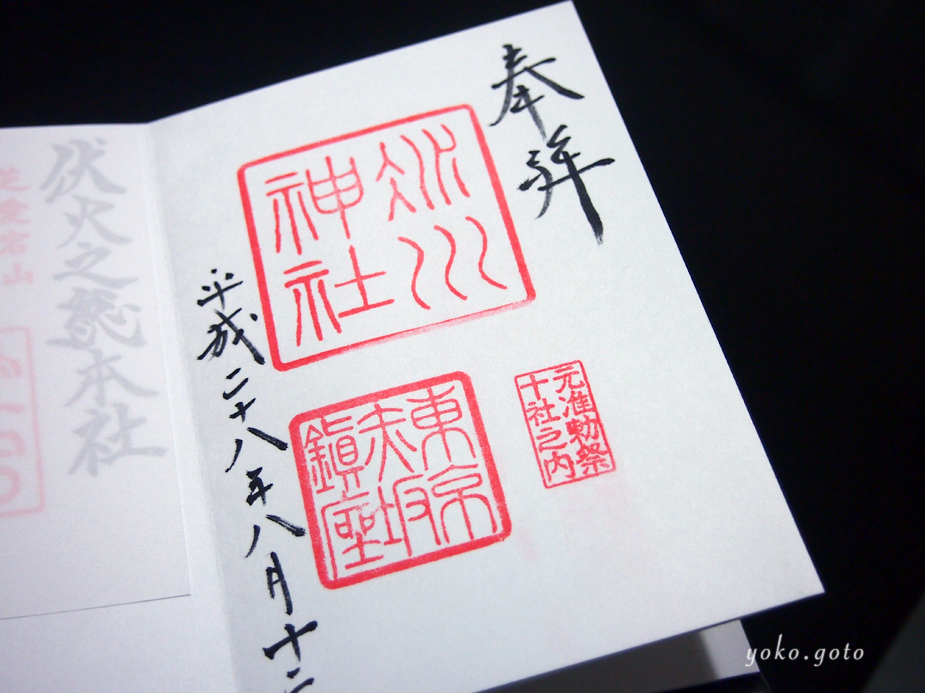 奉拝
氷川
神社
元准勅祭
十社之内
東京
赤坂
鎮座
平成二十八年八月十二
伏火之龍本社
芝愛宕山
yoko.goto